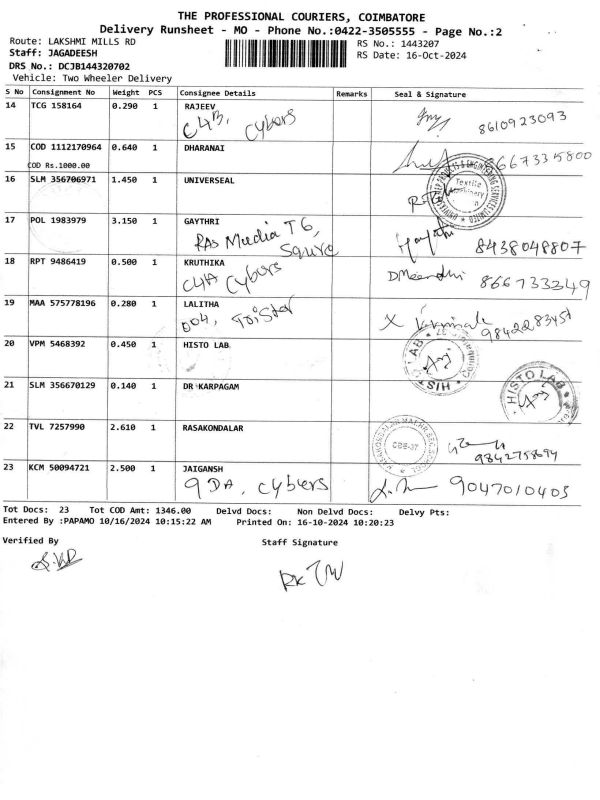 THE PROFESSIONAL COURIERS, COIMBATORE
Delivery Runsheet - MO - Phone No.:0422-3505555 - Page No.:2
Route: LAKSHMI MILLS RD
RS No.: 1443207
Staff: JAGADEESH
RS Date: 16-Oct-2024
DRS No.: DCJB144320702
Vehicle: Two Wheeler Delivery
S No Consignment No Weight PCS Consignee Details Remarks Seal & Signature
14 TCG 158164 0.290 1 RAJEEV
C4B, Cybers 8610923093
15 COD 1112170964 0.640 1 DHARANAI
COD Rs.1000.00 8667335800
16 SLM 356706971 1.450 1 UNIVERSEAL
Textile Machinery
17 POL 1983979 3.150 1 GAYTHRI
RAs Media T6, Squire Gayathri 8438048807
18 RPT 9486419 0.500 1 KRUTHIKA
C4A Cybers 866733249
19 MAA 575778196 0.280 1 LALITHA
004, TriStar X 9842283451
20 VPM 5468392 0.450 1 HISTO LAB
HISTO LAB
21 SLM 356670129 0.140 1 DR KARPAGAM
HISTO LAB
22 TVL 7257990 2.610 1 RASAKONDALAR
CBE-37 9842758694
23 KCM 50094721 2.500 1 JAIGANSH
9DA, Cybers 9047010405
Tot Docs: 23 Tot COD Amt: 1346.00 Delvd Docs: Non Delvd Docs: Delvy Pts:
Entered By :PAPAMO 10/16/2024 10:15:22 AM Printed On: 16-10-2024 10:20:23
Verified By Staff Signature